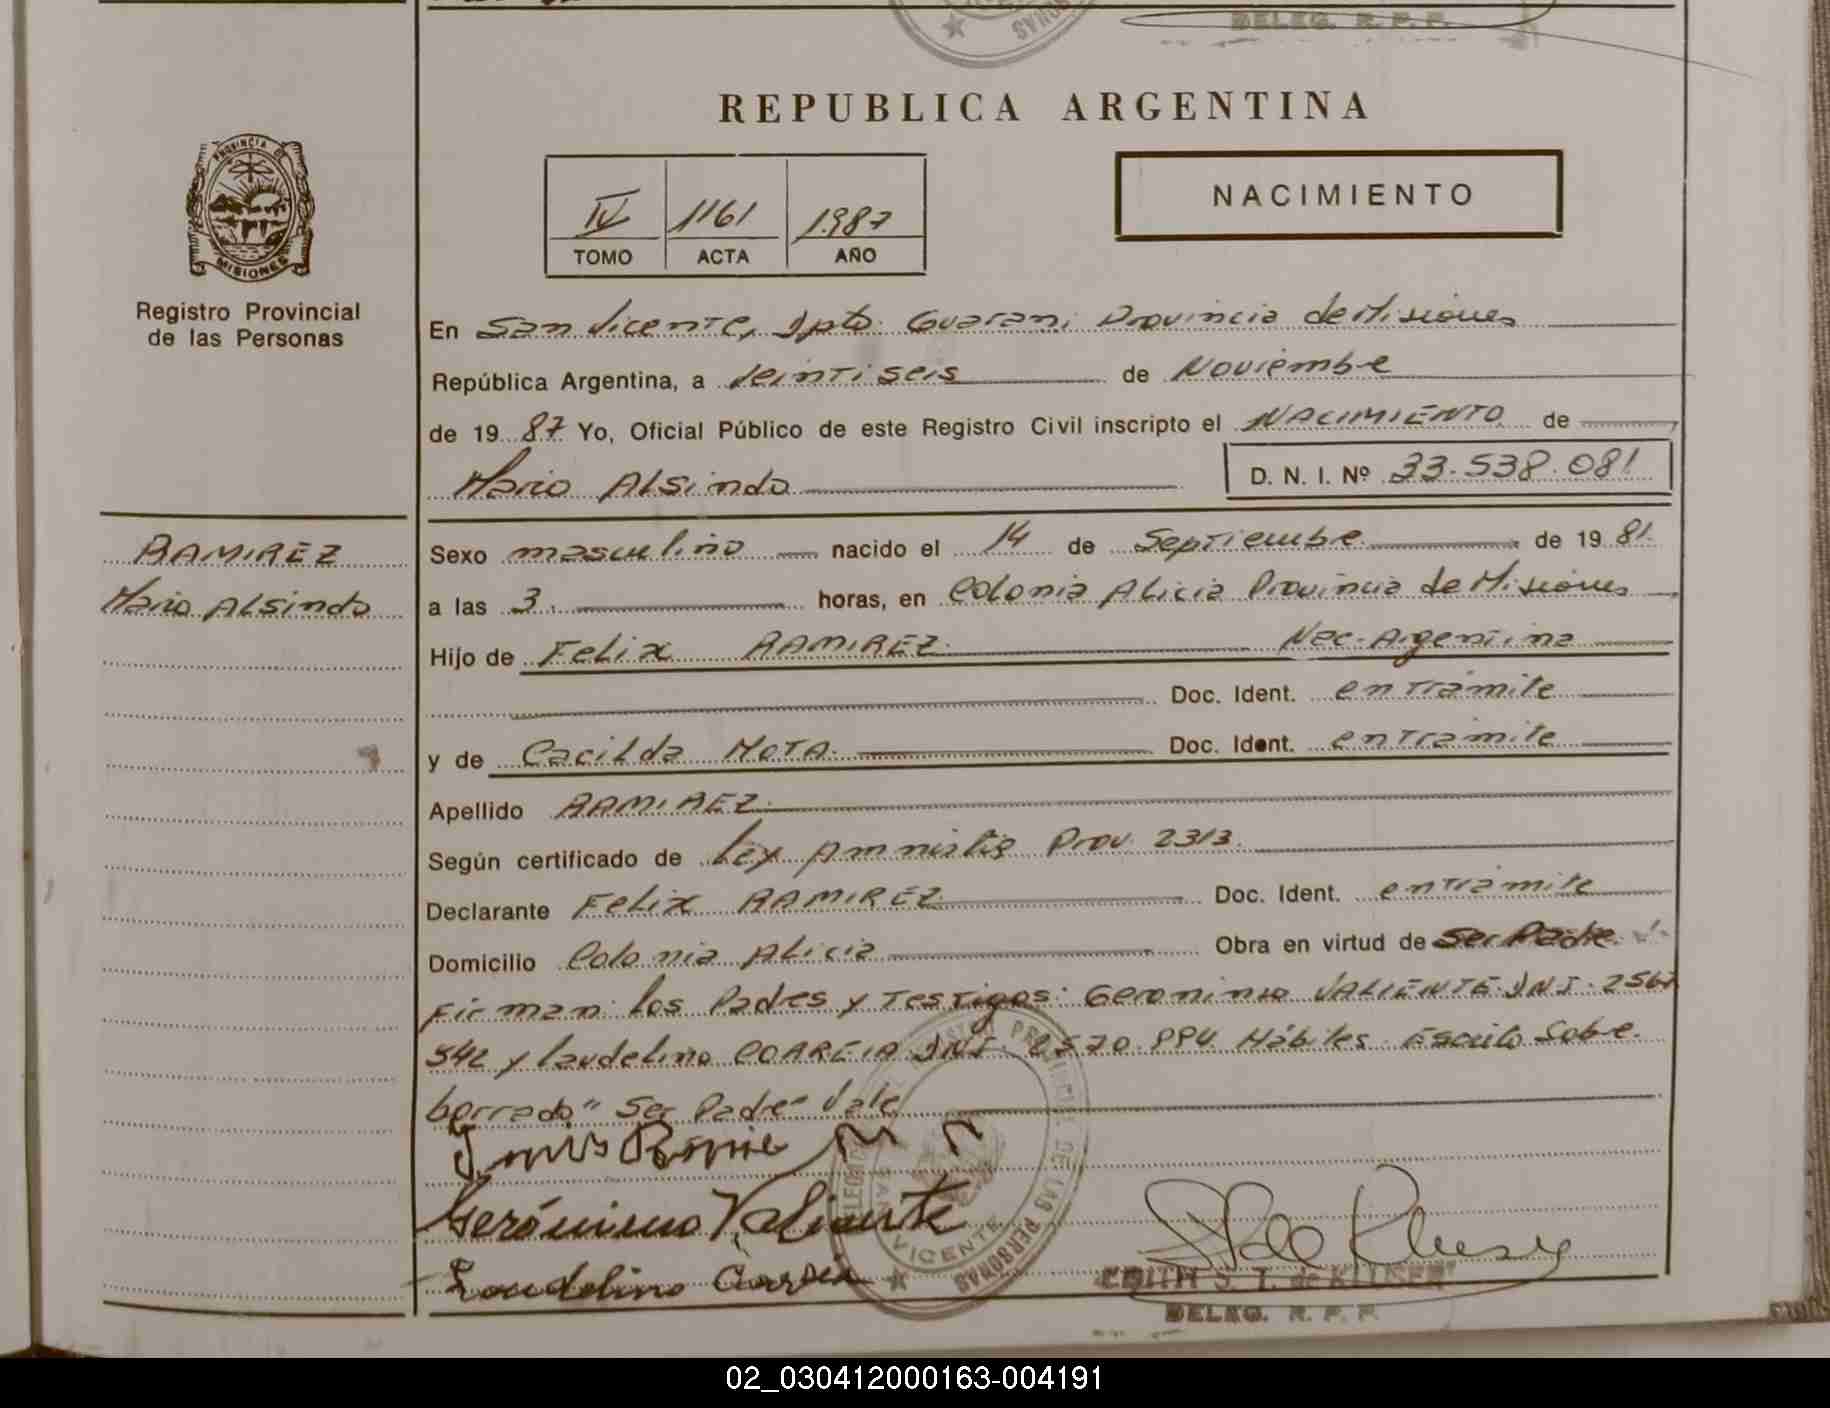 DELEG. R. P. P.
REPUBLICA ARGENTINA
PROVINCIA DE
MISIONES
Registro Provincial
de las Personas
IV 1161 1987
TOMO ACTA AÑO
NACIMIENTO
En San Vicente, Dpto. Guarani Provincia de Misiones
República Argentina, a Veintiseis de Noviembre
de 19 87 Yo, Oficial Público de este Registro Civil inscripto el NACIMIENTO de
Mario Alsindo D. N. I. Nº 33.538.081
RAMIREZ
Mario Alsindo
Sexo masculino nacido el 14 de Septiembre de 19 81.
a las 3. horas, en Colonia Alicia Provincia de Misiones
Hijo de Felix RAMIREZ. Nac. Argentina
Doc. Ident. en tramite
y de Cacilda MOTA. Doc. Ident. en tramite
Apellido RAMIREZ.
Según certificado de Ley Amnistia Prov. 2313.
Declarante Felix RAMIREZ Doc. Ident. en tramite
Domicilio Colonia Alicia Obra en virtud de Ser Padre.
Firman: los Padres y Testigos: Geronimo VALIENTE DNI. 2567
542 y Laudelino DNI. 8570. Hábiles. Escrito Sobre.
borrado "Ser Padre" Vale
Gerónimo Valiente
Laudelino
REGISTRO PROVINCIAL DE LAS PERSONAS
SAN VICENTE
EDITH S. T. de
DELEG. R. P. P.
02_030412000163-004191